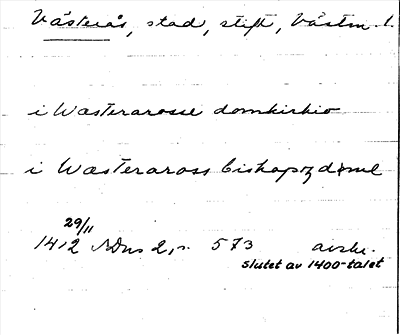 Västerås, stad, stift, Västm. l.
i Wasterarosse domkirkio
i Wasteraross biskopzdøme
29/11
1412 SDns 2, s. 573 avskr.
slutet av 1400-talet